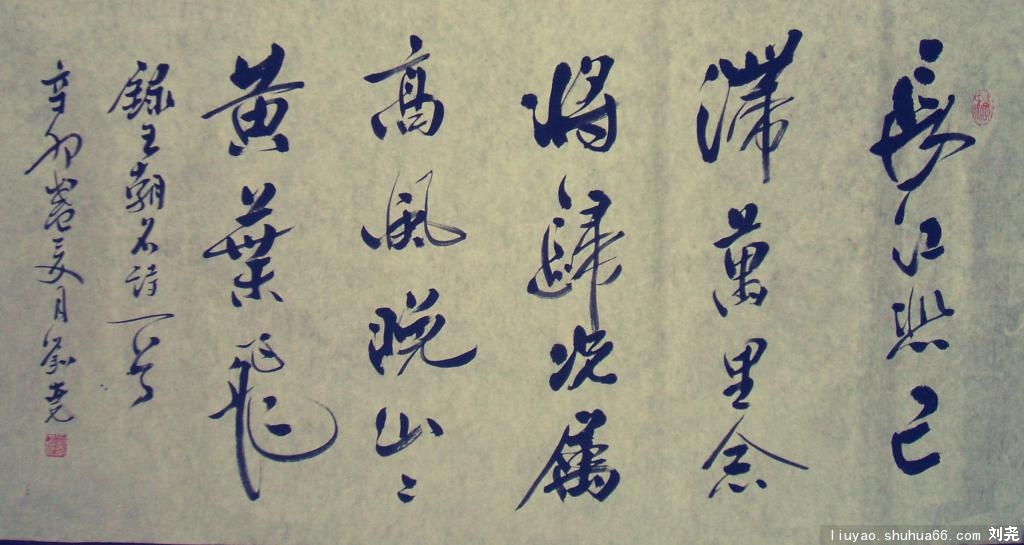 長江悲已
滯萬里念
將歸況屬
高風晚山〻
黄葉飛
録王勃名詩一首
辛卯春三月劉堯
liuyao.shuhua66.com 刘尧